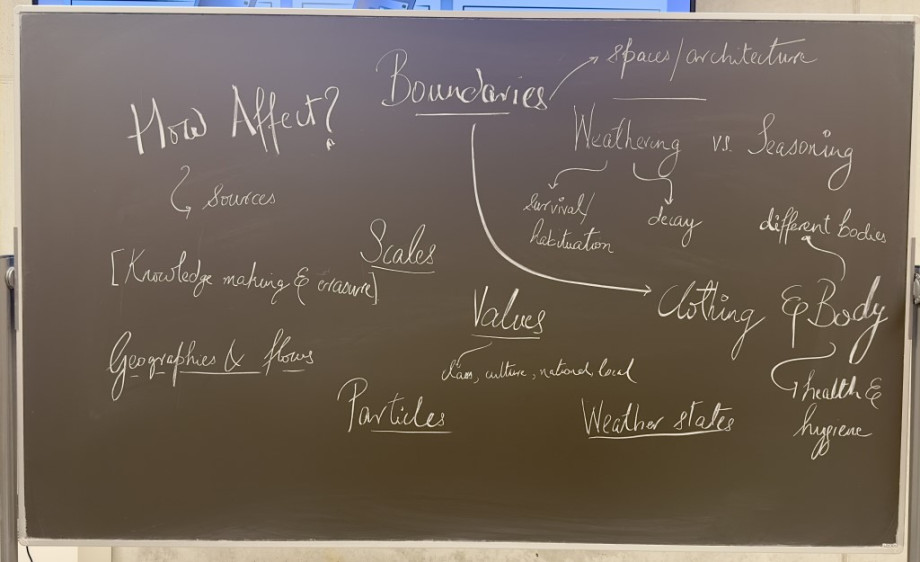 Boundaries
spaces/architecture
How Affect?
Weathering vs. Seasoning
sources
survival/
habituation
decay
different bodies
Scales
[Knowledge making & erasure]
Clothing & Body
Values
Geographies & flows
class, culture, national, local
health &
hygiene
Particles
Weather states